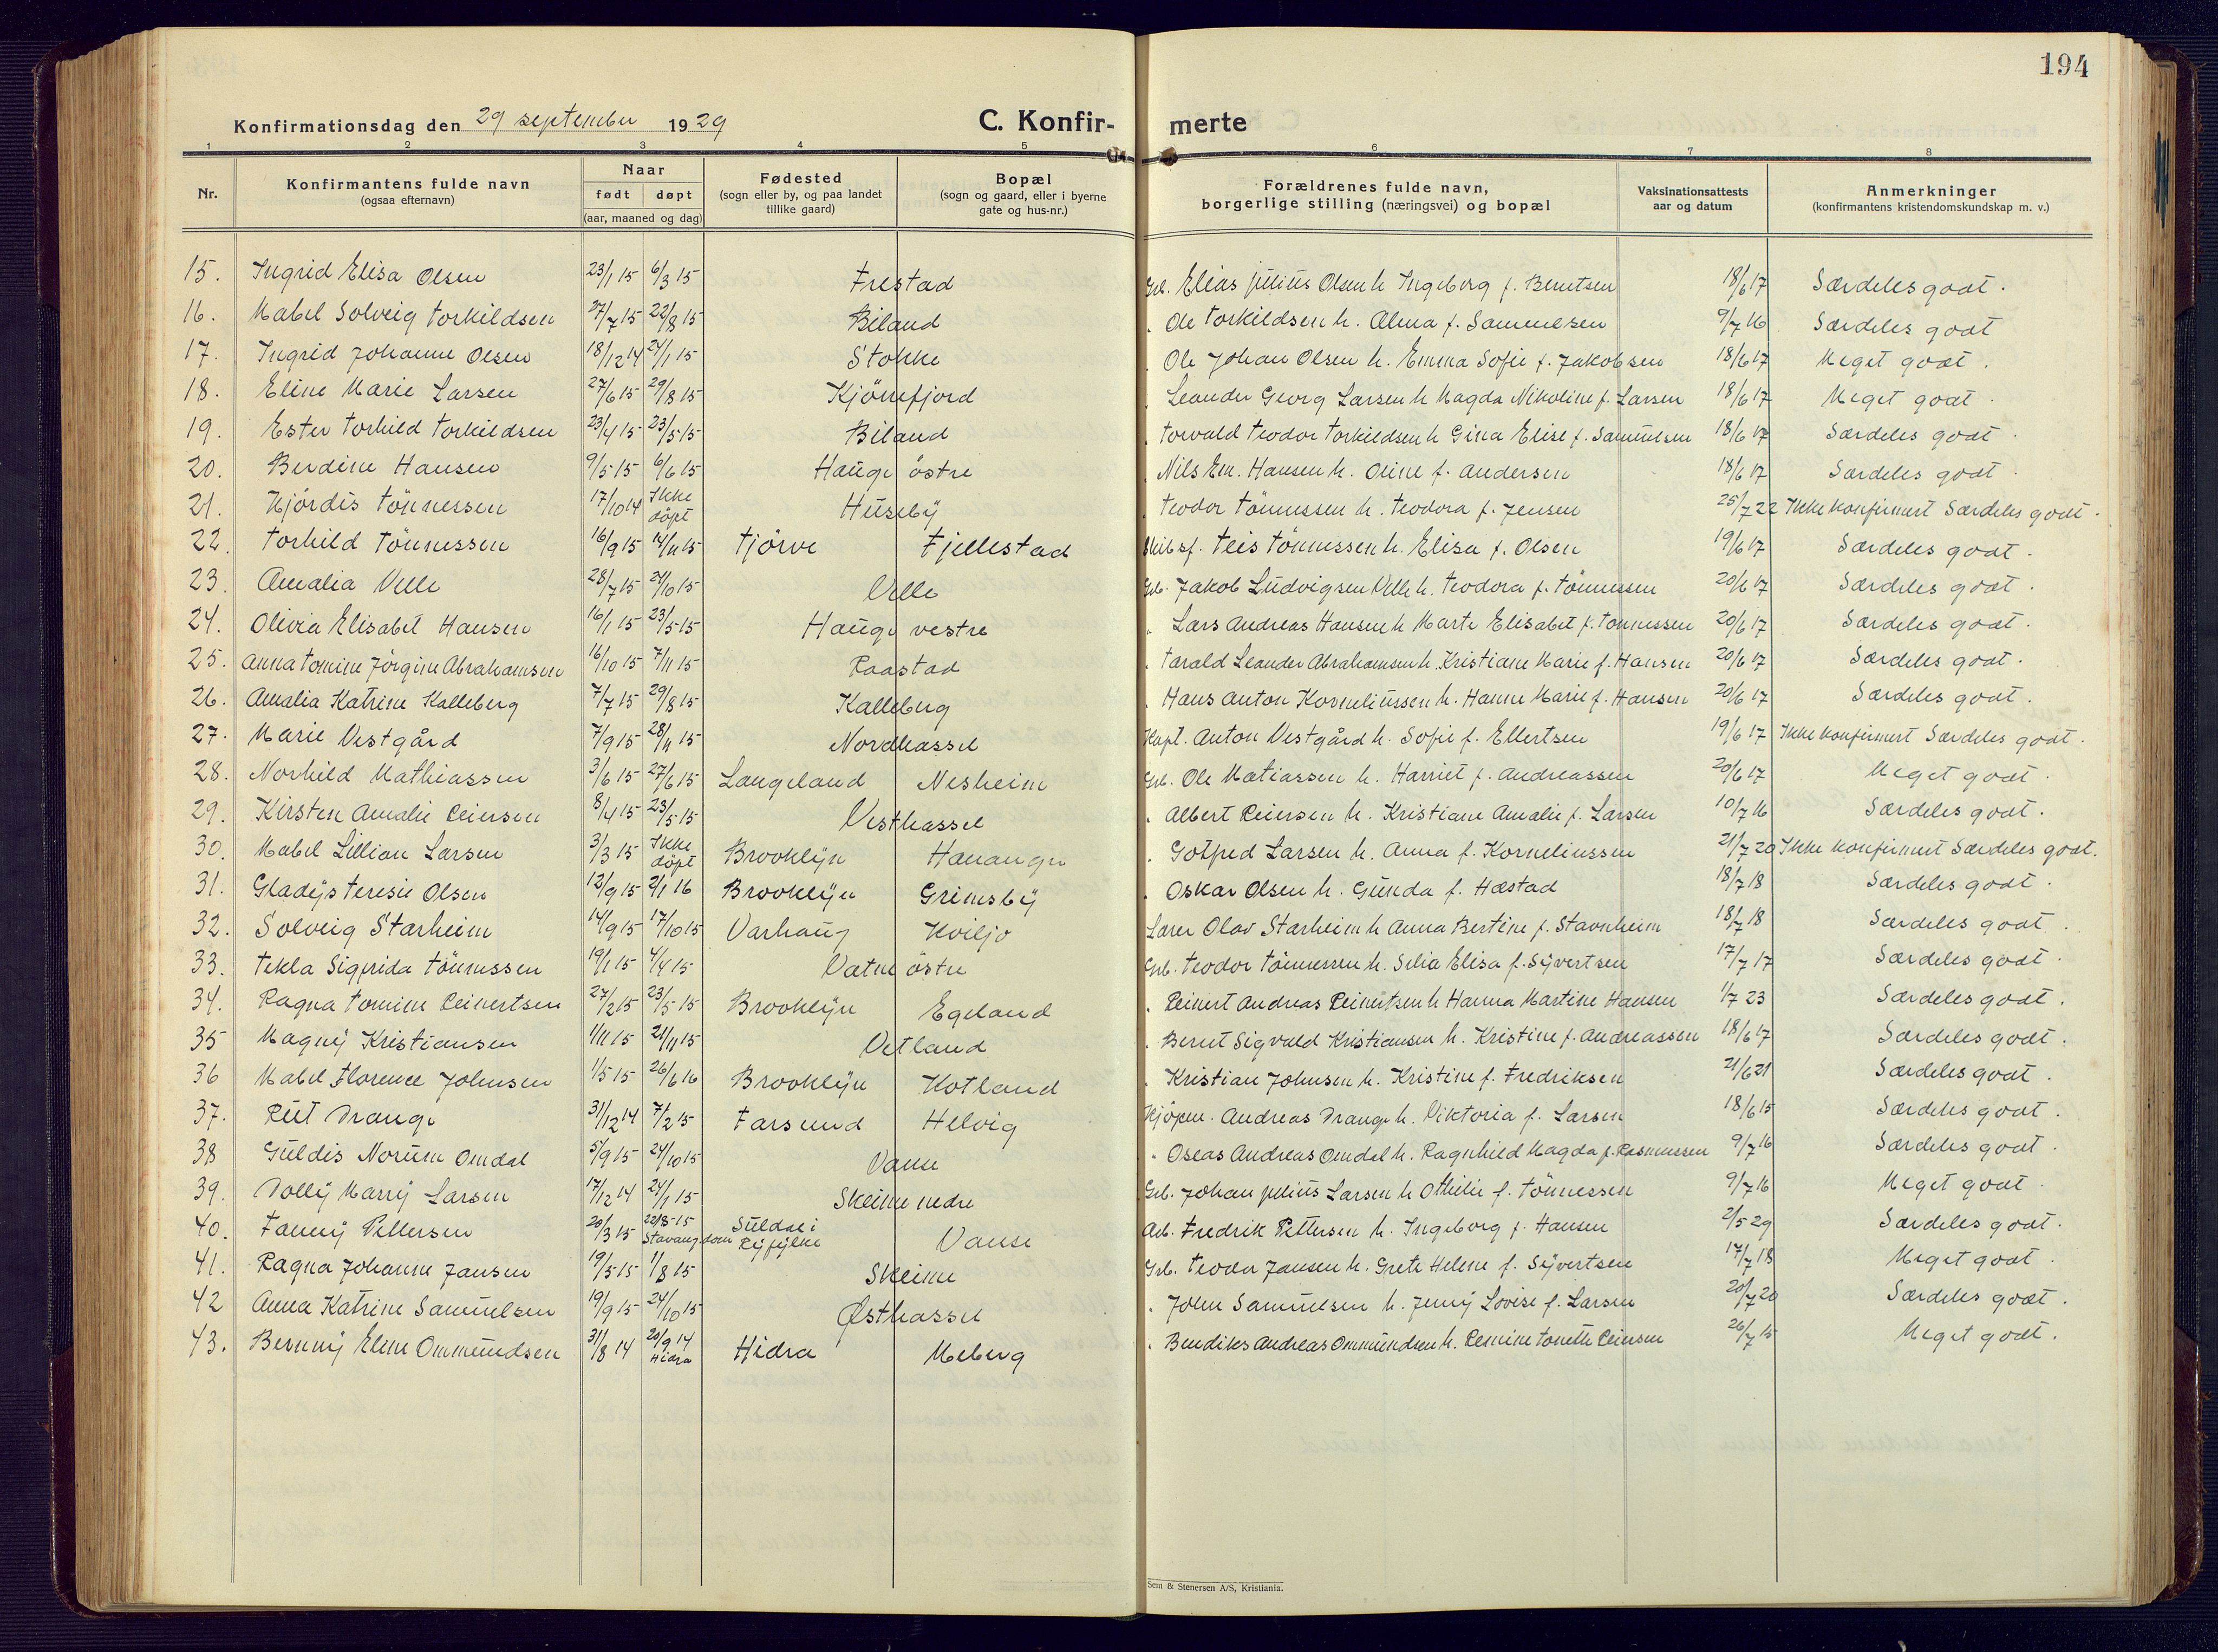 194
Konfirmationsdag den 29 september 1929 C. Konfir- merte
1 2 3 4 5 6 7 8
Nr. Konfirmantens fulde navn (ogsaa efternavn) Naar født døpt (aar, maaned og dag) Fødested (sogn eller by, og paa landet tillike gaard) Bopæl (sogn og gaard, eller i byerne gate og hus-nr.) Forældrenes fulde navn, borgerlige stilling (næringsvei) og bopæl Vaksinationsattests aar og datum Anmerkninger (konfirmantens kristendomskundskap m. v.)
15. Ingrid Elisa Olsen 23/1 15 6/3 15 Frestad Gb. Elias Julius Olsen h. Ingeborg f. Berntsen 18/6 17 Særdeles godt.
16. Mabel Solveig Torkildsen 27/7 15 22/8 15 Biland " Ole Torkildsen h. Alma f. Samuelsen 9/7 16 Særdeles godt
17. Ingrid Johanne Olsen 18/12 14 24/1 15 Stokke " Ole Johan Olsen h. Emma Sofie f. Jakobsen 18/6 17 Meget godt.
18. Eline Marie Larsen 27/6 15 29/8 15 Kjörrefjord " Leander Georg Larsen h. Magda Nikoline f. Larsen 18/6 17 Meget godt.
19. Ester Torhild Torkildsen 23/4 15 23/5 15 Biland " Torvald Teodor Torkildsen h. Gina Elise f. Samuelsen 18/6 17 Særdeles godt.
20. Berdine Hansen 9/5 15 6/6 15 Hauge östre " Nils Em. Hansen h. Oline f. Andersen 18/6 17 Særdeles godt.
21. Hjördis Tönnessen 17/10 14 Ikke döpt Huseby " Teodor Tönnessen h. Teodora f. Jensen 25/7 22 Ikke konfirmert Særdeles godt.
22. Torhild Tönnessen 16/9 15 14/11 15 Tjörve Fjellestad Skibsf. Teis Tönnessen h. Elisa f. Olsen 19/6 17 Særdeles godt.
23. Amalia Velle 28/7 15 24/10 15 Velle Gb. Jakob Ludvigsen Velle h. Teodora f. Tönnessen 20/6 17 Særdeles godt.
24. Olivia Elisabet Hansen 16/1 15 23/5 15 Hauge vestre " Lars Andreas Hansen h. Marte Elisabet f. Tönnessen 20/6 17 Særdeles godt.
25. Anna Tomine Jörgine Abrahamsen 16/10 15 7/11 15 Raastad " Tarald Leander Abrahamsen h. Kristiane Marie f. Hansen 20/6 17 Særdeles godt.
26. Amalia Katrine Kalleberg 7/7 15 29/8 15 Kalleberg " Hans Anton Korneliussen h. Hanne Marie f. Hansen 20/6 17 Særdeles godt.
27. Marie Vestgård 7/9 15 28/11 15 Nordhassel Kapt. Anton Vestgård h. Sofie f. Ellertsen 19/6 17 Ikke konfirmert Særdeles godt.
28. Norhild Mathiassen 3/6 15 27/6 15 Langeland Nesheim Gb. Ole Matiassen h. Harriet f. Andreassen 20/6 17 Meget godt.
29. Kirsten Amalie Reiersen 8/4 15 23/5 15 Vesthassel " Albert Reiersen h. Kristiane Amalie f. Larsen 10/7 16 Særdeles godt.
30. Mabel Lillian Larsen 3/3 15 Ikke döpt Brooklyn Hanangen " Gotfred Larsen h. Anna f. Korneliussen 21/7 20 Ikke konfirmert Særdeles godt.
31. Gladys Teresie Olsen 12/9 15 2/1 16 Brooklyn Grimsby " Oskar Olsen h. Gunda f. Hæstad 18/7 18 Særdeles godt.
32. Solveig Starheim 14/9 15 17/10 15 Varhaug Kviljo Lærer Olav Starheim h. Anna Bertine f. Stavnheim 18/7 18 Særdeles godt.
33. Tekla Sigfrida Tönnessen 19/1 15 4/4 15 Vatne östre Gb. Teodor Tönnessen h. Silia Elisa f. Syvertsen 17/7 17 Særdeles godt.
34. Ragna Tomine Reinertsen 27/2 15 23/5 15 Brooklyn Egeland " Reinert Andreas Reinertsen h. Hanna Martine Hansen 1/7 23 Særdeles godt.
35 Magny Kristiansen 1/11 15 21/11 15 Vetland " Bernt Sigvald Kristiansen h. Kristine f. Andreassen 18/6 17 Særdeles godt.
36 Mabel Florence Johnsen 1/5 15 26/6 16 Brooklyn Kotland " Kristian Johnsen h. Kristine f. Fredriksen 21/6 21 Særdeles godt.
37. Rut Drange 31/12 14 7/2 15 Farsund Helvig Kjöpm. Andreas Drange h. Viktoria f. Larsen 18/6 15 Særdeles godt.
38 Guldis Norum Omdal 5/9 15 24/10 15 Vanse " Oseas Andreas Omdal h. Ragnhild Magda f. Rasmussen 9/7 16 Særdeles godt.
39. Dolly Marry Larsen 17/12 14 24/1 15 Skeime nedre Gb. Johan Julius Larsen h. Othilie f. Tönnessen 9/7 16 Meget godt.
40. Fanny Pettersen 20/3 15 22/8-15 Stavang. dom Suldal i Ryfylke Vanse Arb. Fredrik Pettersen h. Ingeborg f. Hansen 2/5 29 Særdeles godt.
41. Ragna Johanne Jansen 19/5 15 1/8 15 Skeime Gb. Teodor Jansen h. Grete Helene f. Syvertsen 17/7 18 Meget godt.
42 Anna Katrine Samuelsen 19/9 15 24/10 15 Østhassel " John Samuelsen h. Jenny Lovise f. Larsen 20/7 20 Særdeles godt.
43. Bernny Eline Ommundsen 31/8 14 20/9 14 Hidra Hidra Meberg " Bendiks Andreas Ommundsen h. Remine Toneth Reiersen 26/7 15 Meget godt.
Sem & Stenersen A/S, Kristiania.